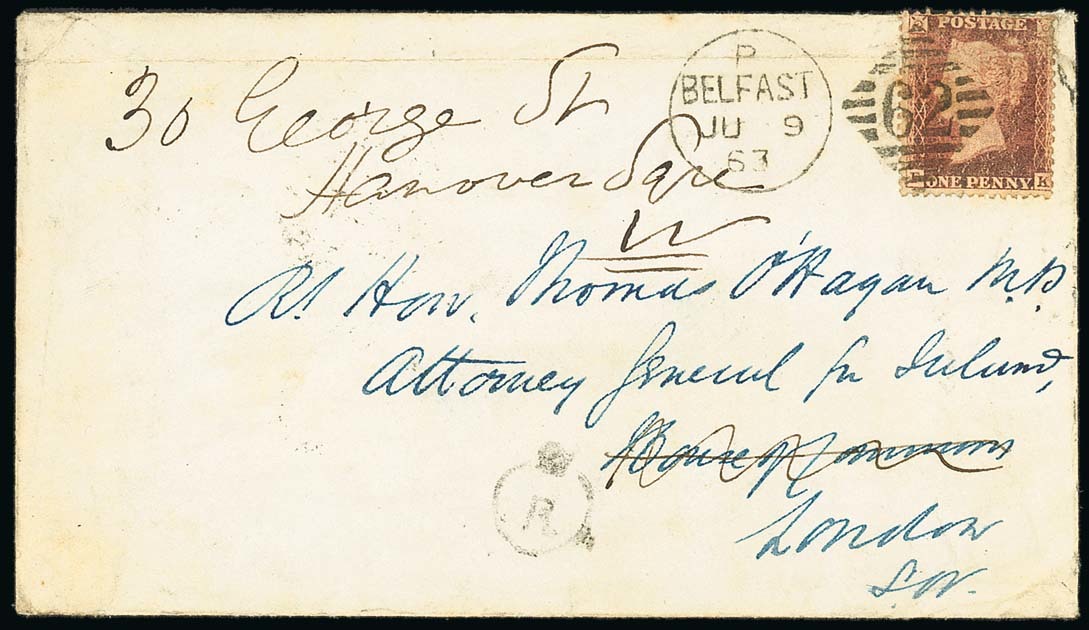 POSTAGE
P
BELFAST
JU 9
63
62
ONE PENNY
K
30 George St
Hanover Sqre
W
Rt Hon. Thomas O'Hagan M.P.
Attorney General for Ireland,
House of Commons
London
S.W.
R